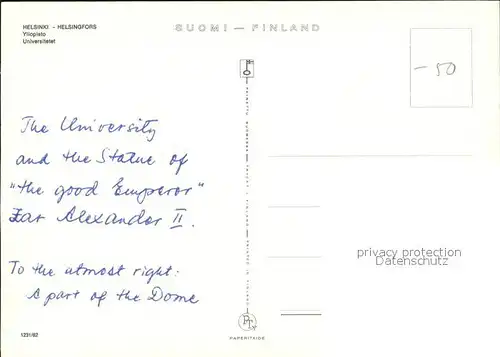 HELSINKI - HELSINGFORS
Yliopisto
Universitetet
SUOMI — FINLAND
- 50
The University
and the Statue of
"the good Emperor"
Zar Alexander II.
To the utmost right:
A part of the Dome
privacy protection
Datenschutz
1231/62
PAPERITAIDE